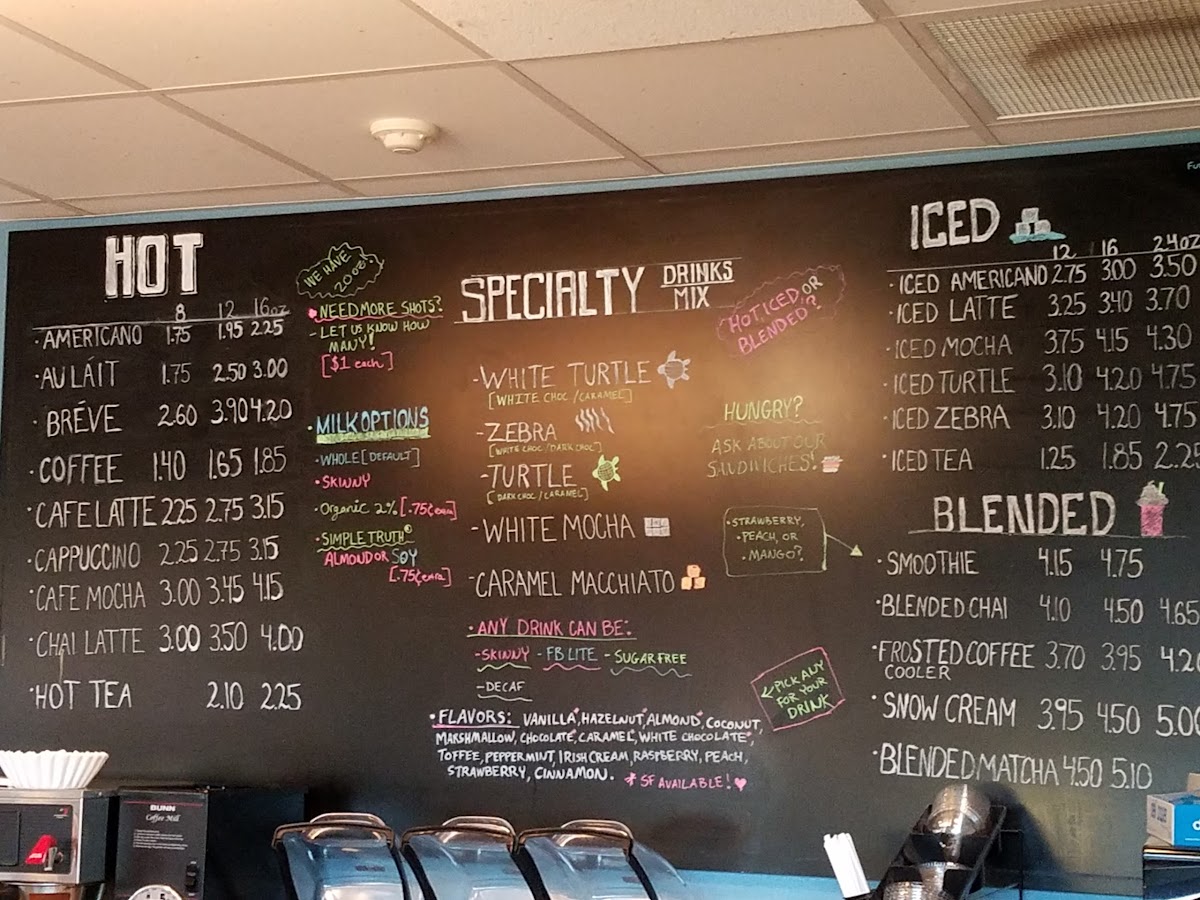 HOT
8 12 16oz
· AMERICANO 1.75 1.95 2.25
· AU LÁIT 1.75 2.50 3.00
· BRÉVE 2.60 3.90 4.20
· COFFEE 1.40 1.65 1.85
· CAFE LATTE 2.25 2.75 3.15
· CAPPUCCINO 2.25 2.75 3.15
· CAFE MOCHA 3.00 3.45 4.15
· CHAI LATTE 3.00 3.50 4.00
· HOT TEA 2.10 2.25
WE HAVE
20oz!
NEED MORE SHOTS?
- LET US KNOW HOW
MANY!
[$1 each]
· MILK OPTIONS
· WHOLE [DEFAULT]
· SKINNY
· Organic 2% [.75¢ extra]
· SIMPLE TRUTH®
ALMOND OR SOY
[.75¢ extra]
SPECIALTY DRINKS
MIX
HOT, ICED OR
BLENDED?
- WHITE TURTLE
[WHITE CHOC / CARAMEL]
- ZEBRA
[WHITE CHOC / DARK CHOC]
- TURTLE
[DARK CHOC / CARAMEL]
- WHITE MOCHA
- CARAMEL MACCHIATO
· ANY DRINK CAN BE:
- SKINNY - FB LITE - SUGAR FREE
- DECAF
· FLAVORS: VANILLA*, HAZELNUT*, ALMOND*, COCONUT,
MARSHMALLOW, CHOCOLATE*, CARAMEL*, WHITE CHOCOLATE*,
TOFFEE, PEPPERMINT, IRISH CREAM, RASPBERRY, PEACH,
STRAWBERRY, CINNAMON. * SF AVAILABLE!
HUNGRY?
ASK ABOUT OUR
SANDWICHES!
· STRAWBERRY,
· PEACH, OR
· MANGO?
PICK ANY
FOR YOUR
DRINK
ICED
12 16 24oz
· ICED AMERICANO 2.75 3.00 3.50
· ICED LATTE 3.25 3.40 3.70
· ICED MOCHA 3.75 4.15 4.30
· ICED TURTLE 3.10 4.20 4.75
· ICED ZEBRA 3.10 4.20 4.75
· ICED TEA 1.25 1.85 2.25
BLENDED
· SMOOTHIE 4.15 4.75
· BLENDED CHAI 4.10 4.50 4.65
· FROSTED COFFEE 3.70 3.95 4.20
COOLER
· SNOW CREAM 3.95 4.50 5.00
· BLENDED MATCHA 4.50 5.10
BUNN
Coffee Mill